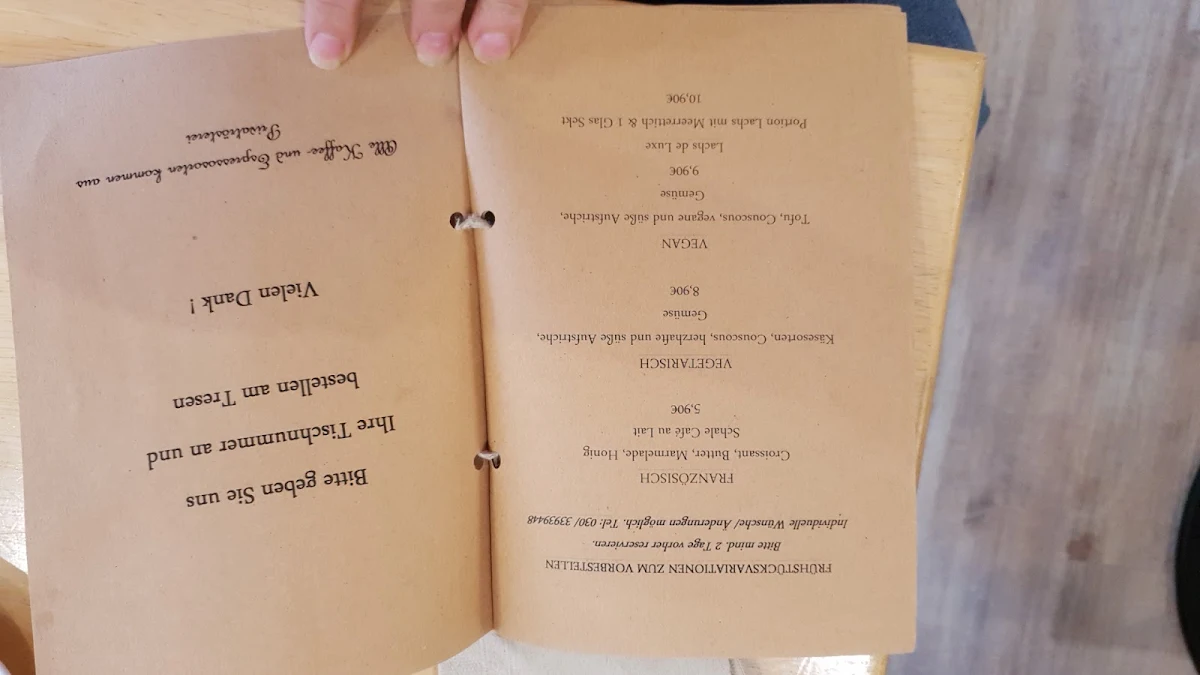 FRÜHSTÜCKSVARIATIONEN ZUM VORBESTELLEN
Bitte mind. 2 Tage vorher reservieren.
Individuelle Wünsche/ Änderungen möglich. Tel: 030/ 33939448
FRANZÖSISCH
Croissant, Butter, Marmelade, Honig
Schale Café au Lait
5,90€
VEGETARISCH
Käsesorten, Couscous, herzhafte und süße Aufstriche,
Gemüse
8,90€
VEGAN
Tofu, Couscous, vegane und süße Aufstriche,
Gemüse
9,90€
Lachs de Luxe
Portion Lachs mit Meerrettich & 1 Glas Sekt
10,90€
Bitte geben Sie uns
Ihre Tischnummer an und
bestellen am Tresen
Vielen Dank !
Alle Kaffee- und Espressosorten kommen aus
Privatrösterei